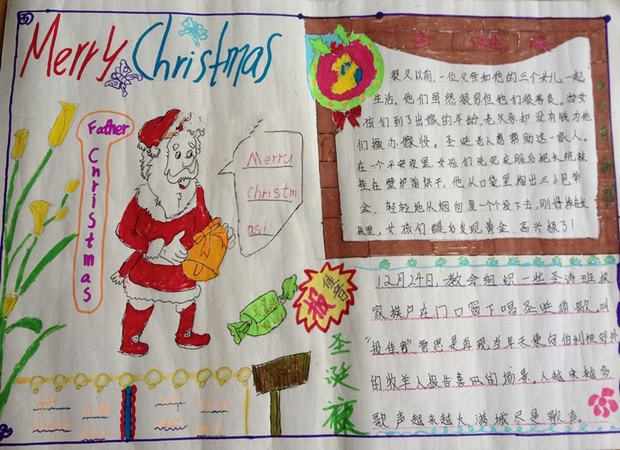 Merry Christmas
Father
Christmas
Merry
christm
as!
很久以前,一位父亲和他的三个女儿一起
生活。他们虽然贫穷但他们很善良。当女
孩们到了出嫁的年龄,老父亲却没有钱为他
们操办嫁妆。圣诞老人想帮助这一家人。
在一个平安夜里,女孩们洗完衣服后把长统袜
挂在壁炉前烘干,他从口袋里掏出三小包黄
金,轻轻地从烟囱里一个个投下去,刚好掉在长
袜里,女孩们醒后发现黄金,高兴极了!
报佳音
圣诞夜
12月24日,教会组织一些圣诗班挨
家挨户在门口窗下唱圣诞颂歌,叫
"报佳音"意思是再现当年天使向伯利恒郊外
的牧羊人报告喜讯的场景,人越来越多
歌声越来越大 满城尽是歌声